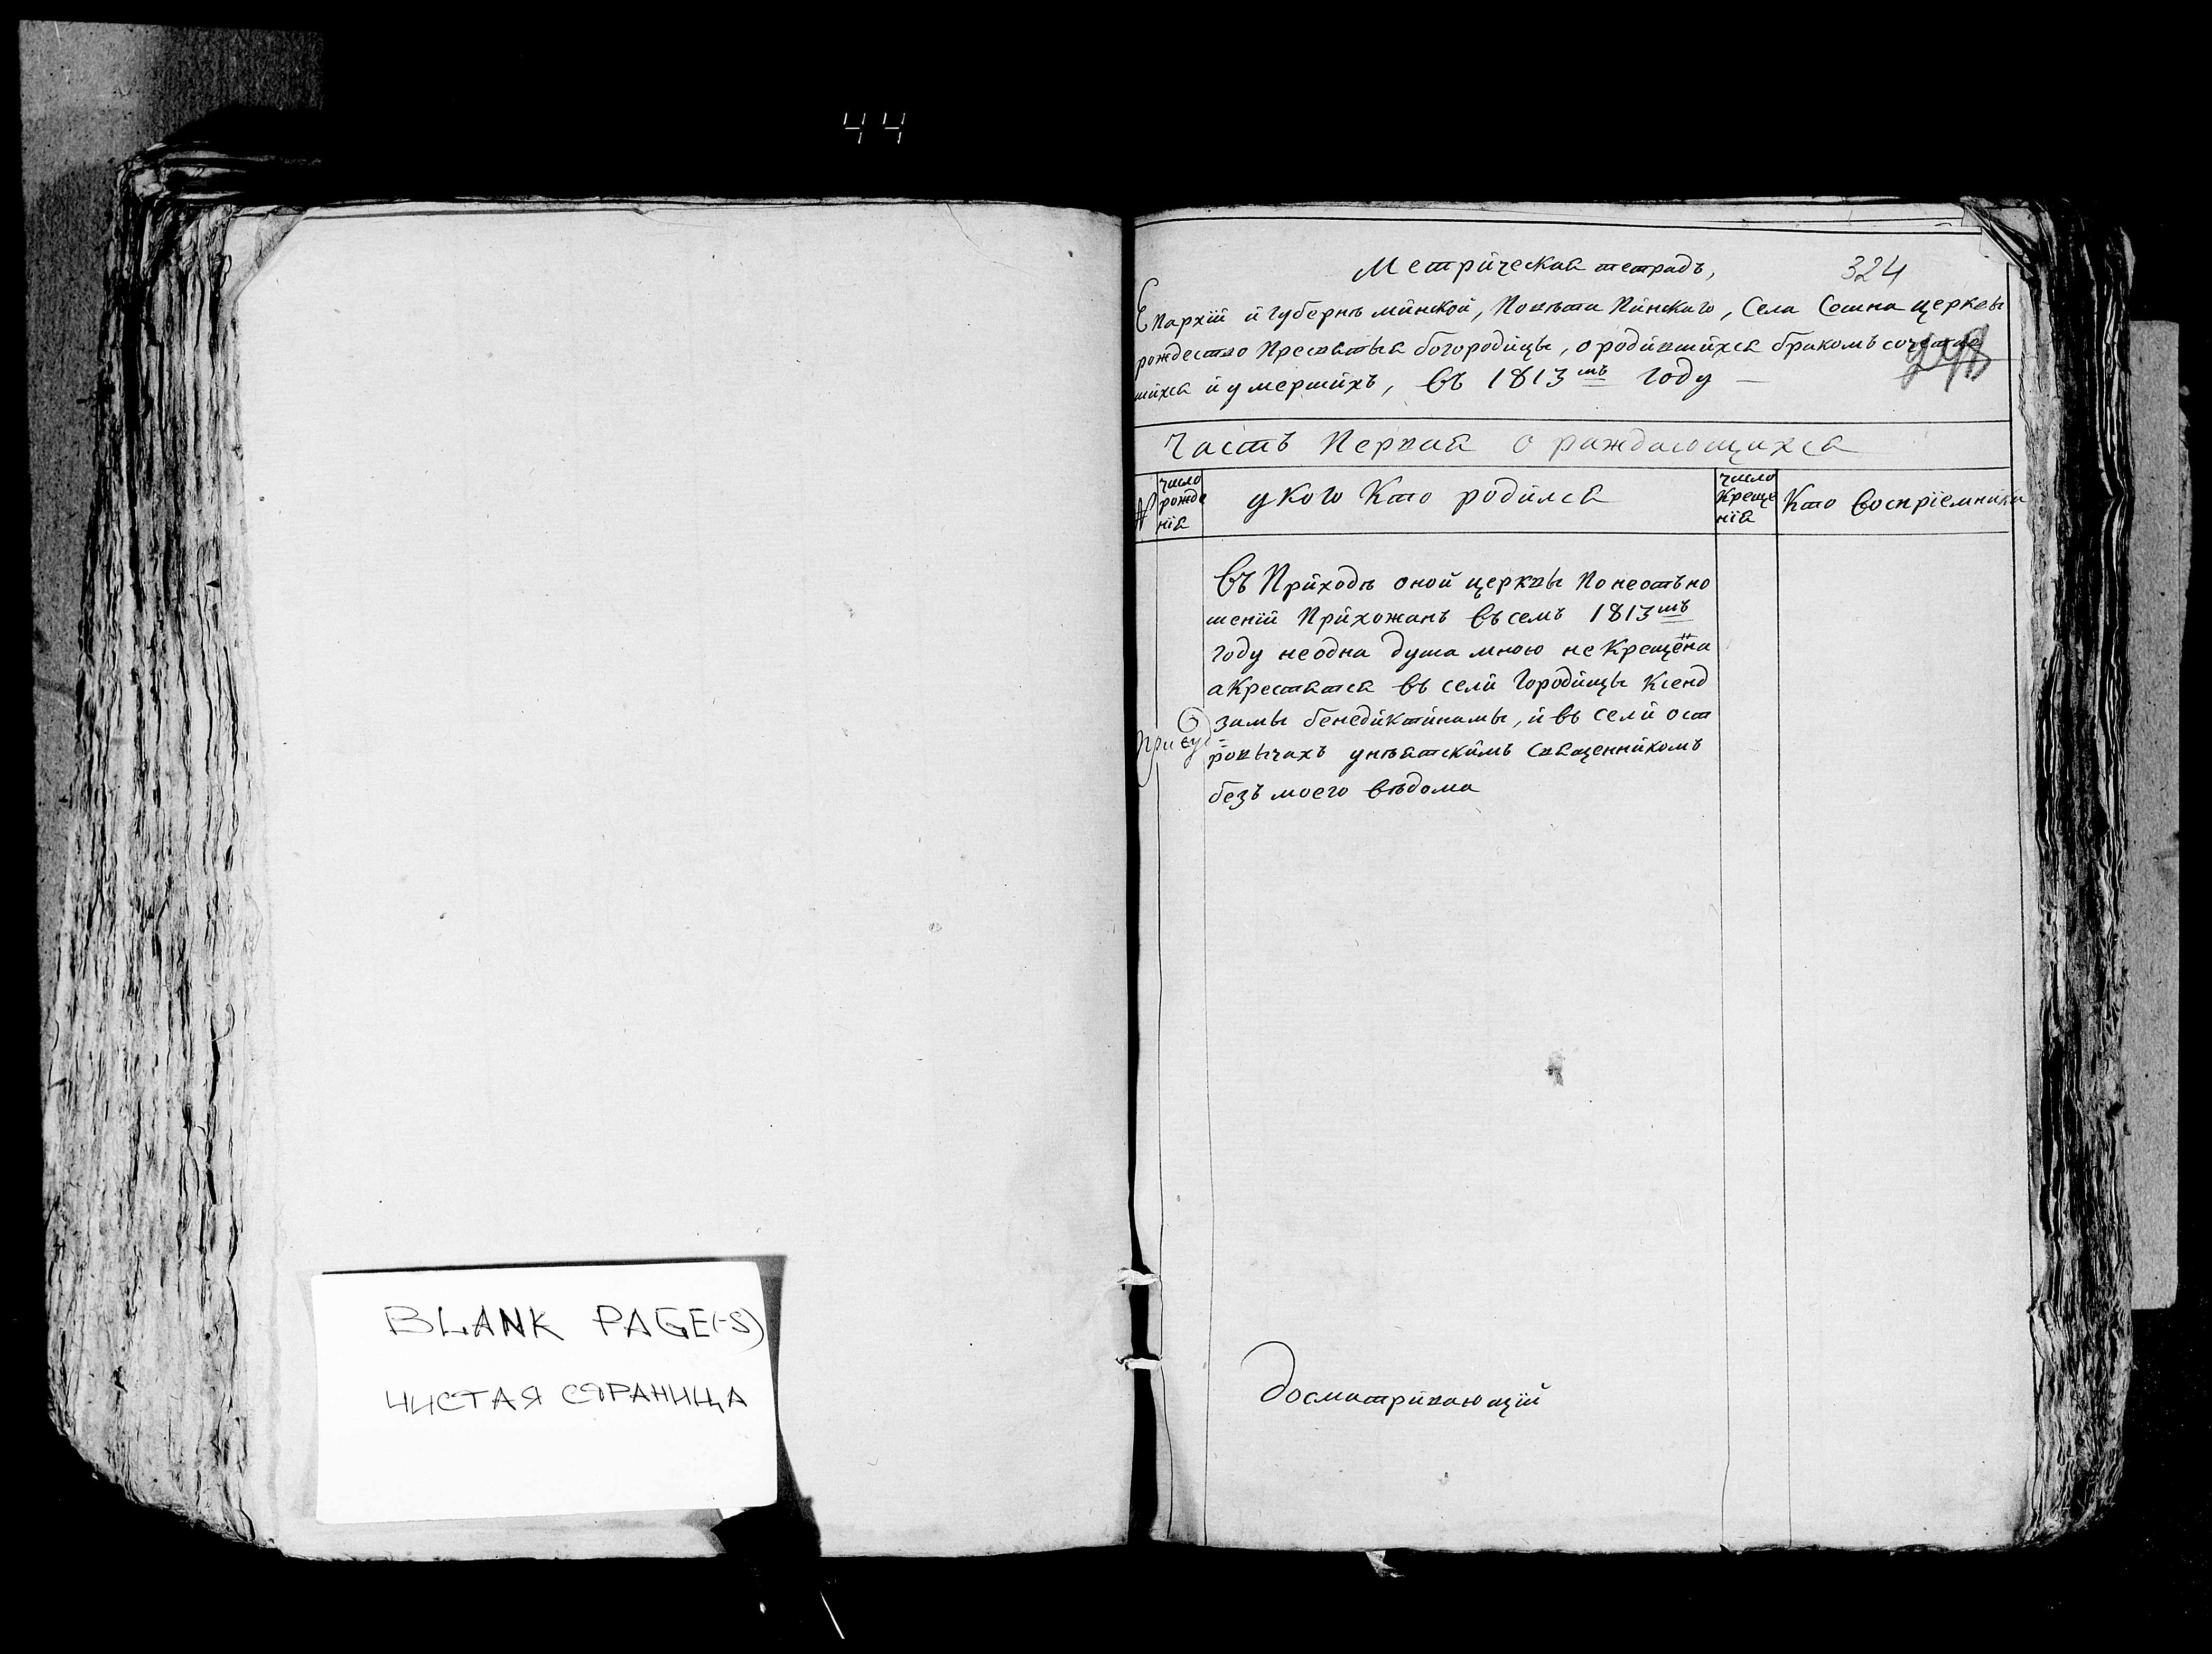 44
BLANK PAGE(-S)
ЧИСТАЯ СТРАНИЦА
Метрическая тетрадь,
324
Епархїй и губернѣ минской, Повѣта Пинскаго, Села Сошна церквы
рождество Пресвятыя богородицы, о родившихся бракомъ сочетав
шихся и умершихъ, въ 1813мъ году —
Часть Первая о раждающихся
№
число рожде нїя
у кого Кто родился
число Креще нїя
Кто воспрїемники
Въ Приходѣ оной церквы По неотъно
шенїй Прихожанъ въ семъ 1813мъ
году не одна душа мною не Крещена
а Крестятся въ сели Городищы Ксенд
замы бенедиктинамы, и въ сели ост
ровычахъ унѣятскимъ Священникомъ
безъ моего вѣдома
досматривающїй